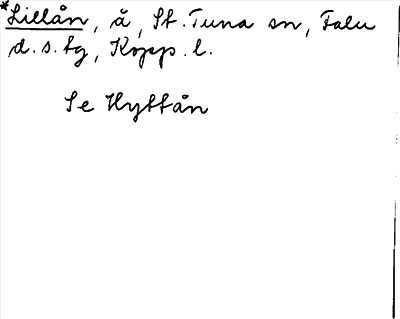 *Lillån, å, St. Tuna sn, Falu
d.s. tg, Kopp. l.
Se Hyttån